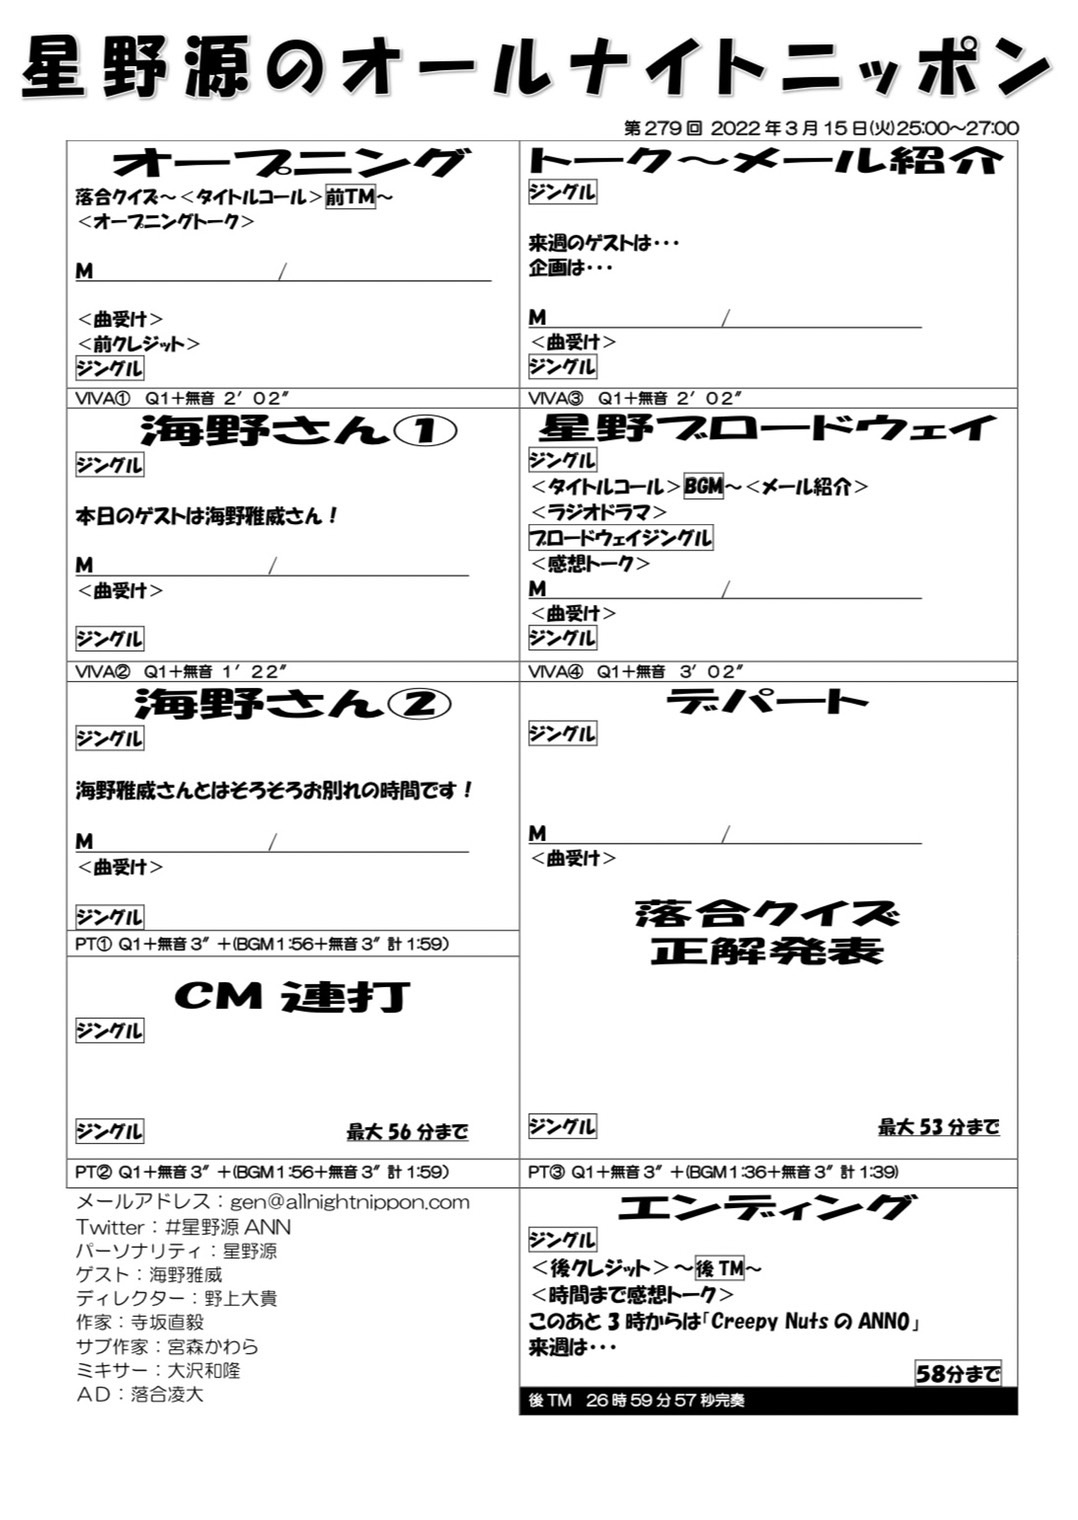 星野源のオールナイトニッポン
第279回 2022年3月15日(火)25:00～27:00
オープニング
落合クイズ～＜タイトルコール＞前TM～
＜オープニングトーク＞
M /
＜曲受け＞
＜前クレジット＞
ジングル
VIVA① Q1＋無音 2′02″
海野さん①
ジングル
本日のゲストは海野雅威さん！
M /
＜曲受け＞
ジングル
VIVA② Q1＋無音 1′22″
海野さん②
ジングル
海野雅威さんとはそろそろお別れの時間です！
M /
＜曲受け＞
ジングル
PT① Q1＋無音3″＋(BGM1:56＋無音3″計1:59)
CM 連打
ジングル
ジングル 最大56分まで
PT② Q1＋無音3″＋(BGM1:56＋無音3″計1:59)
メールアドレス：gen@allnightnippon.com
Twitter：＃星野源ANN
パーソナリティ：星野源
ゲスト：海野雅威
ディレクター：野上大貴
作家：寺坂直毅
サブ作家：宮森かわら
ミキサー：大沢和隆
AD：落合凌大
トーク～メール紹介
ジングル
来週のゲストは・・・
企画は・・・
M /
＜曲受け＞
ジングル
VIVA③ Q1＋無音 2′02″
星野ブロードウェイ
ジングル
＜タイトルコール＞BGM～＜メール紹介＞
＜ラジオドラマ＞
ブロードウェイジングル
＜感想トーク＞
M /
＜曲受け＞
ジングル
VIVA④ Q1＋無音 3′02″
デパート
ジングル
M /
＜曲受け＞
落合クイズ
正解発表
ジングル 最大53分まで
PT③ Q1＋無音3″＋(BGM1:36＋無音3″計1:39)
エンディング
ジングル
＜後クレジット＞～後TM～
＜時間まで感想トーク＞
このあと3時からは「Creepy NutsのANN0」
来週は・・・
58分まで
後TM 26時59分57秒完奏